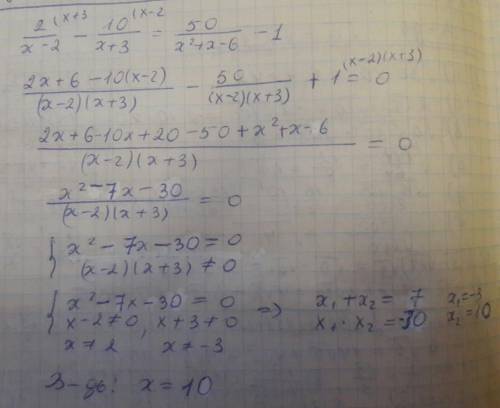 2 (x+3 / x-2 - 10 (x-2 / x+3 = 50 / x²+x-6 - 1
2x+6-10(x-2) / (x-2)(x+3) - 50 / (x-2)(x+3) + 1 (x-2)(x+3) = 0
2x+6-10x+20-50+x²+x-6 / (x-2)(x+3) = 0
x²-7x-30 / (x-2)(x+3) = 0
{ x²-7x-30=0
(x-2)(x+3)≠0
{ x²-7x-30=0 => x₁+x₂=7 x₁=-3
x-2≠0, x+3≠0 x₁·x₂=-30 x₂=10
x≠2 x≠-3
В-дь: x=10